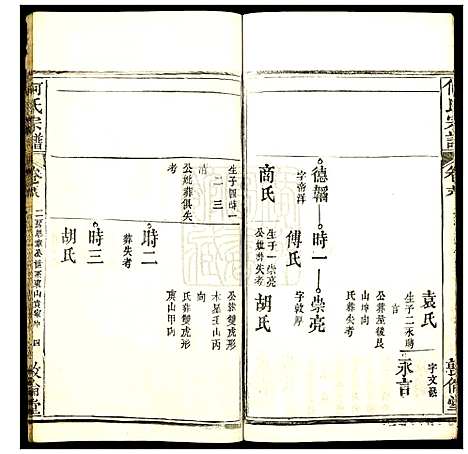 何氏宗譜
卷
敦倫堂
袁氏
生子二永時
言
公葬屋後艮
山坤向
氏葬失考
永言
字文
德韜
時一
崇亮
字帝洋
傅氏
字敦厚
商氏
生子一崇亮
公妣葬失考
胡氏
公葬雙虎形
木星丙山丙
向
氏葬雙虎形
寅山甲向
生子四時一
二三
公妣葬俱失
考
時二
葬失考
時三
胡氏
何氏宗譜
卷
敦倫堂